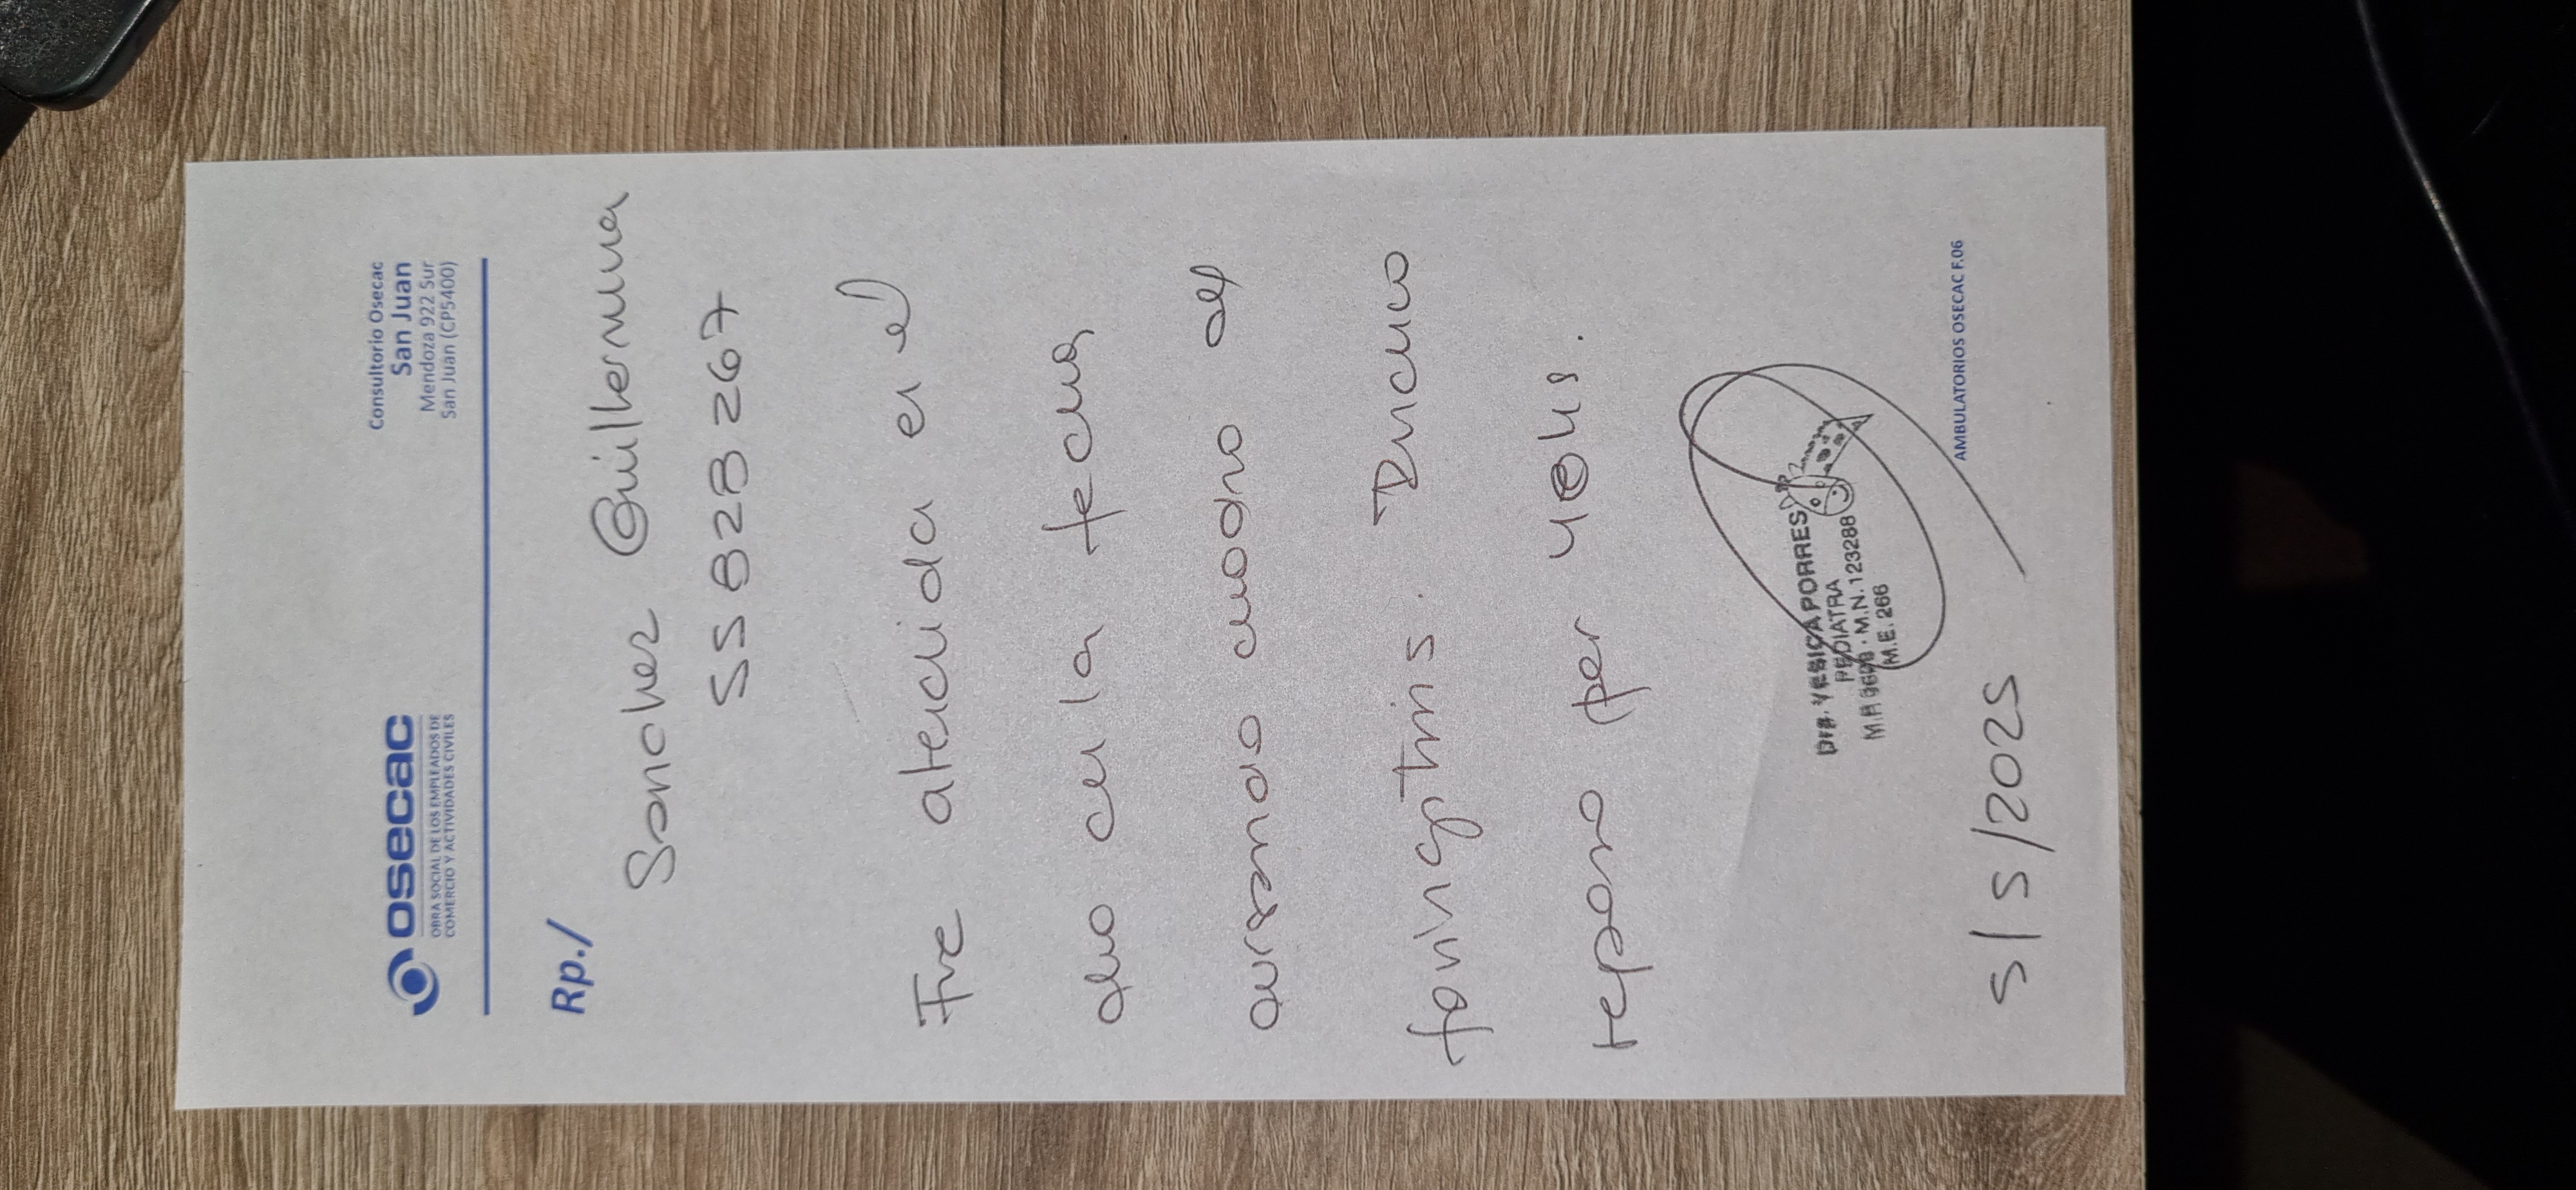 osecac
OBRA SOCIAL DE LOS EMPLEADOS DE
COMERCIO Y ACTIVIDADES CIVILES
Consultorio Osecac
San Juan
Mendoza 922 Sur
San Juan (CP5400)
Rp./
Sanchez Guillermina
55828267
Fue atendida en el
dia en la fecha
cursando cuadro de
faringitis. Indico
reposo por 48hs.
Dra. YESICA PORRES
PEDIATRA
M.N. 123288
M.E. 266
5/5/2025
AMBULATORIOS OSECAC F.06